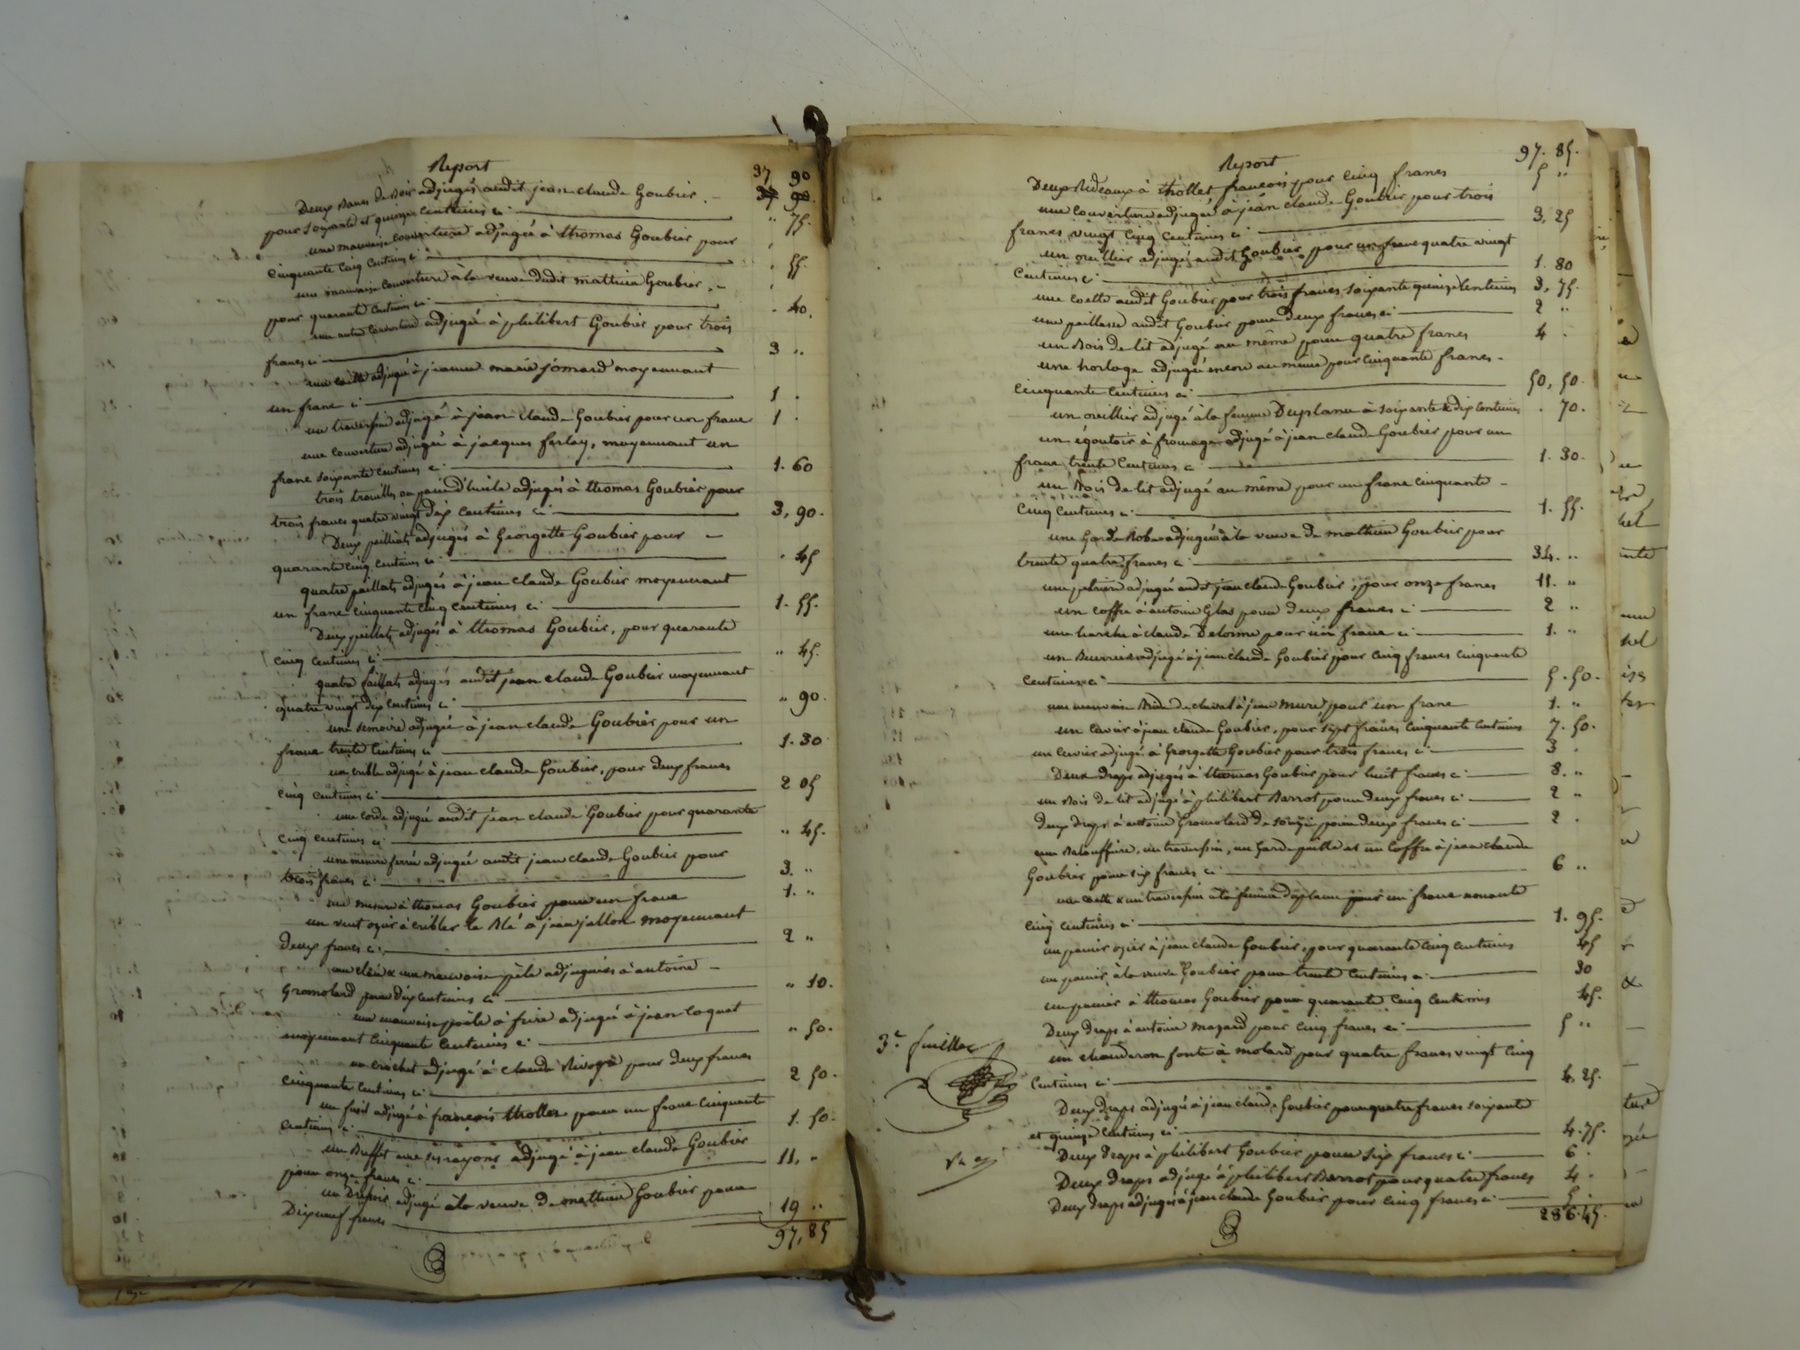 Report
37 90
37 90.
Deux Bancs de Bois adjugés audit jean claude Goubier. -
pour soixante et quinze centimes ci " 75.
une mauvaise couverture adjugée à thomas Goubier pour
cinquante cinq centimes ci " 55.
une mauvaise couverture à la veuve dudit mathieu Goubier. -
pour quarante centimes ci " 40.
une autre couverture adjugée à philibert Goubier pour trois
francs ci 3 "
une adjugée à jeanne marie jomard moyennant
un franc ci 1 .
un traversin adjugé à jean claude Goubier pour un franc 1 .
une couverture adjugée à jacques ferlay, moyennant un
franc soixante centimes ci 1. 60
trois d'huile adjugés à thomas Goubier pour
trois francs quatre vingt dix centimes ci 3, 90.
Deux adjugés à Georgette Goubier pour -
quarante cinq centimes ci " 45
quatre paillats adjugés à jean claude Goubier moyennant
un franc cinquante cinq centimes ci 1. 55.
Deux adjugés à thomas Goubier, pour quarante
cinq centimes ci " 45.
quatre paillats adjugés audit jean claude Goubier moyennant
quatre vingt dix centimes ci " 90.
une adjugée à jean claude Goubier pour un
franc trente centimes ci 1. 30
un crible adjugé à jean claude Goubier, pour deux francs
cinq centimes ci 2 05
une corde adjugée audit jean claude Goubier pour quarante
cinq centimes ci " 45.
une mesure ferrée adjugée audit jean claude Goubier pour
trois francs ci 3. "
une mesure à thomas Goubier pour un franc 1. "
un à cribler le Blé à jean jallon moyennant
deux francs ci 2 "
une & une mauvaise pèle adjugées à antoine -
Gromolard pour dix centimes ci " 10.
une mauvaise poële à frire adjugée à jean coquet
moyennant cinquante centimes ci " 50.
un crochet adjugé à claude pour deux francs
cinquante centimes ci 2 50.
un fusil adjugé à françois thollet pour un franc cinquante
centimes ci 1. 50.
un Buffet avec ses rayons adjugé à jean claude Goubier
pour onze francs ci 11. "
un adjugé à la veuve de mathieu Goubier pour
Dixneuf francs 19 "
97, 85
Report 97. 85.
Deux Rideaux à thollet françois pour cinq francs 5 "
une couverture adjugée à jean claude Goubier pour trois
francs vingt cinq centimes ci 3, 25
un oreiller adjugé audit Goubier pour un franc quatre vingt
centimes ci 1. 80
une coette audit Goubier pour trois francs soixante quinze centimes 3, 75.
une paillasse audit Goubier pour deux francs ci 2 "
un Bois de lit adjugé au même pour quatre francs 4 .
une horloge adjugée encore au même pour cinquante francs -
cinquante centimes ci 50, 50.
un oreiller adjugé à la femme Duplanu à soixante & dix centimes . 70.
un égoutoir à fromages adjugé à jean claude Goubier pour un
franc trente centimes ci 1. 30.
un Bois de lit adjugé au même pour un franc cinquante -
cinq centimes ci 1. 55.
une Garde Robe adjugée à la veuve de mathieu Goubier pour
trente quatre francs ci 34. "
un adjugé audit jean claude Goubier, pour onze francs 11. "
un coffre à antoine Glas pour deux francs ci 2 "
une à claude Delorme pour un franc ci 1. "
un adjugé à jean claude Goubier pour cinq francs cinquante
centimes ci 5. 50.
une mauvaise Bride de cheval à jean mure pour un franc 1. "
un cuvier à jean claude Goubier, pour sept francs cinquante centimes 7. 50.
un cuvier adjugé à Georgette Goubier pour trois francs ci 3 .
Deux draps adjugés à thomas Goubier pour huit francs ci 8. "
un Bois de lit adjugé à philibert Barrot pour deux francs ci 2 "
deux draps à antoine Gromolard de pour deux francs ci 2 .
une, un traversin, un Garde paille et un coffre à jean claude
Goubier pour six francs ci 6 "
une coette & un traversin à la femme duplanu pour un franc nonante
cinq centimes ci 1. 95.
un panier à jean claude Goubier, pour quarante cinq centimes 45
un panier à la veuve Goubier pour trente centimes ci 30
un panier à thomas Goubier pour quarante cinq centimes 45.
Deux draps à antoine mazard pour cinq francs ci 5 "
3e. feuillet
un chauderon fonte à molard pour quatre francs vingt cinq
centimes ci 4. 25.
Deux draps adjugés à jean claude Goubier pour quatre francs soixante
et quinze centimes ci 4. 75.
Deux draps à philibert Goubier pour six francs ci 6 .
Deux draps adjugé à philibert Barrot pour quatre francs 4 .
Deux draps adjugés à jean claude Goubier pour cinq francs ci 5 .
286. 45.